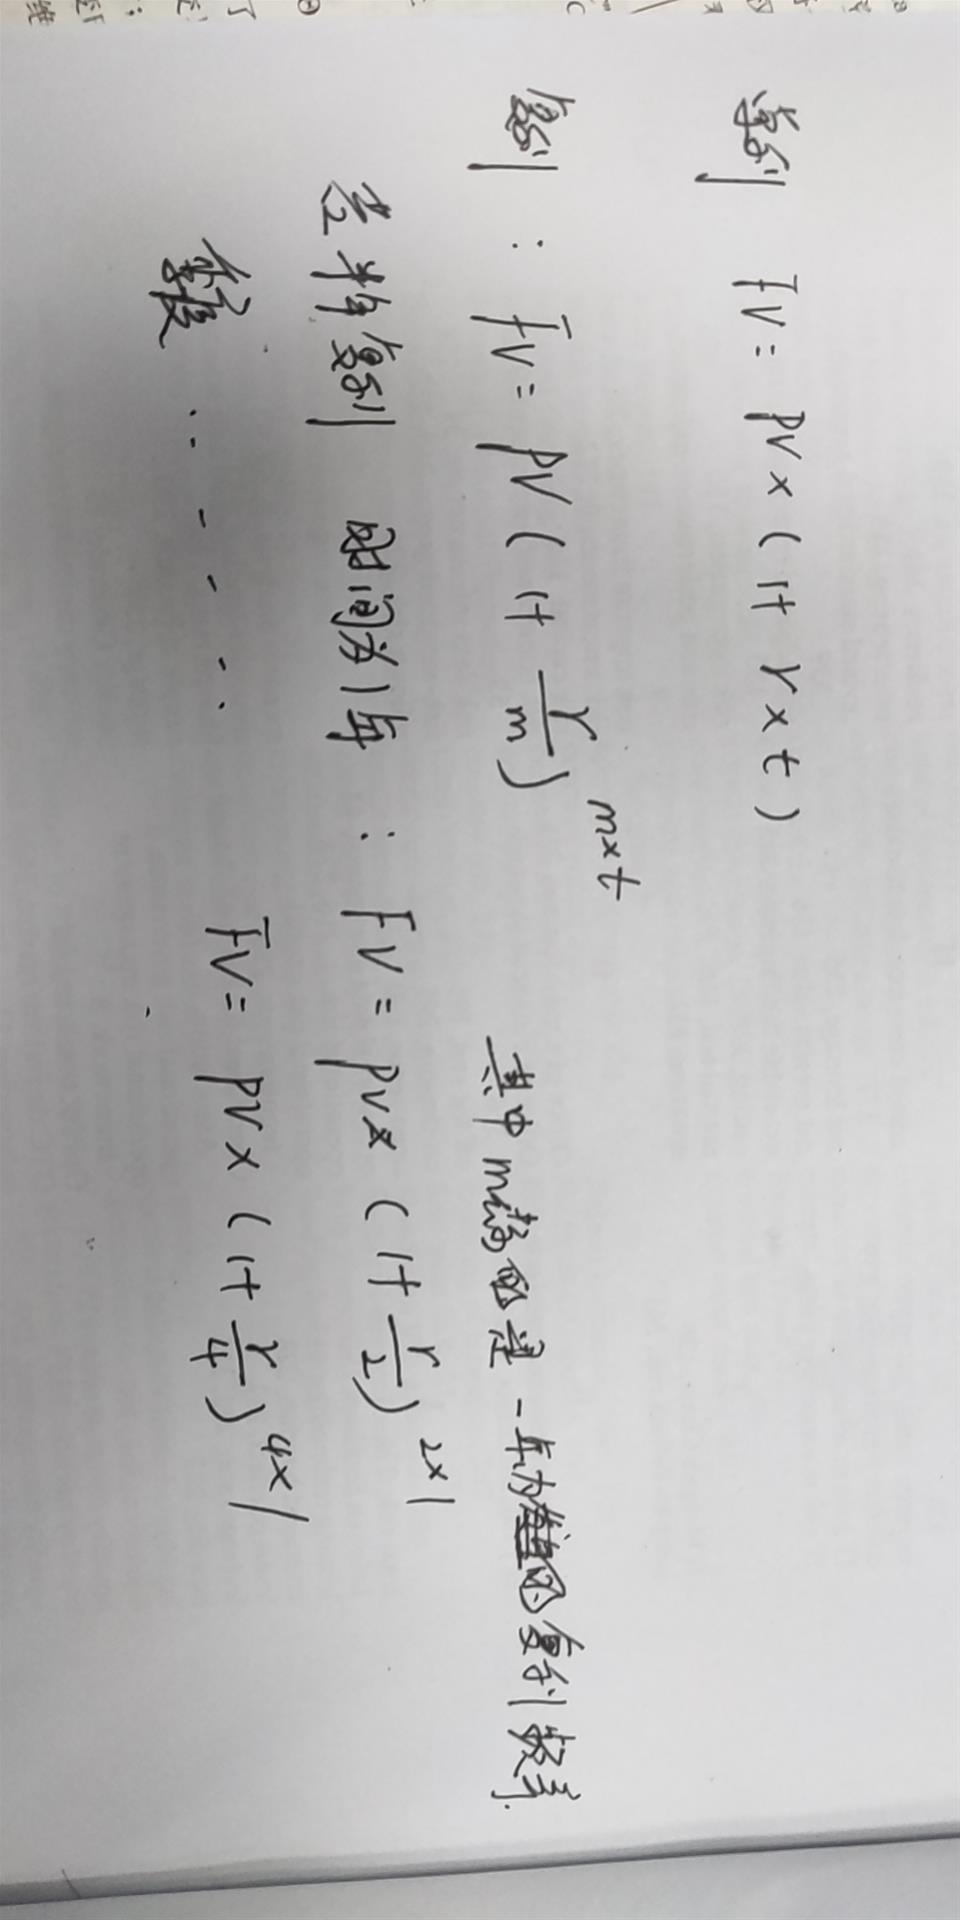 单利 FV = PV × ( 1 + r × t )
复利 : FV = PV ( 1 + r/m )^m×t 其中 m 指的是 一年内的复利频率.
若半年复利 时间为1年 : FV = PV × ( 1 + r/2 )^2×1
季度 FV = PV × ( 1 + r/4 )^4×1